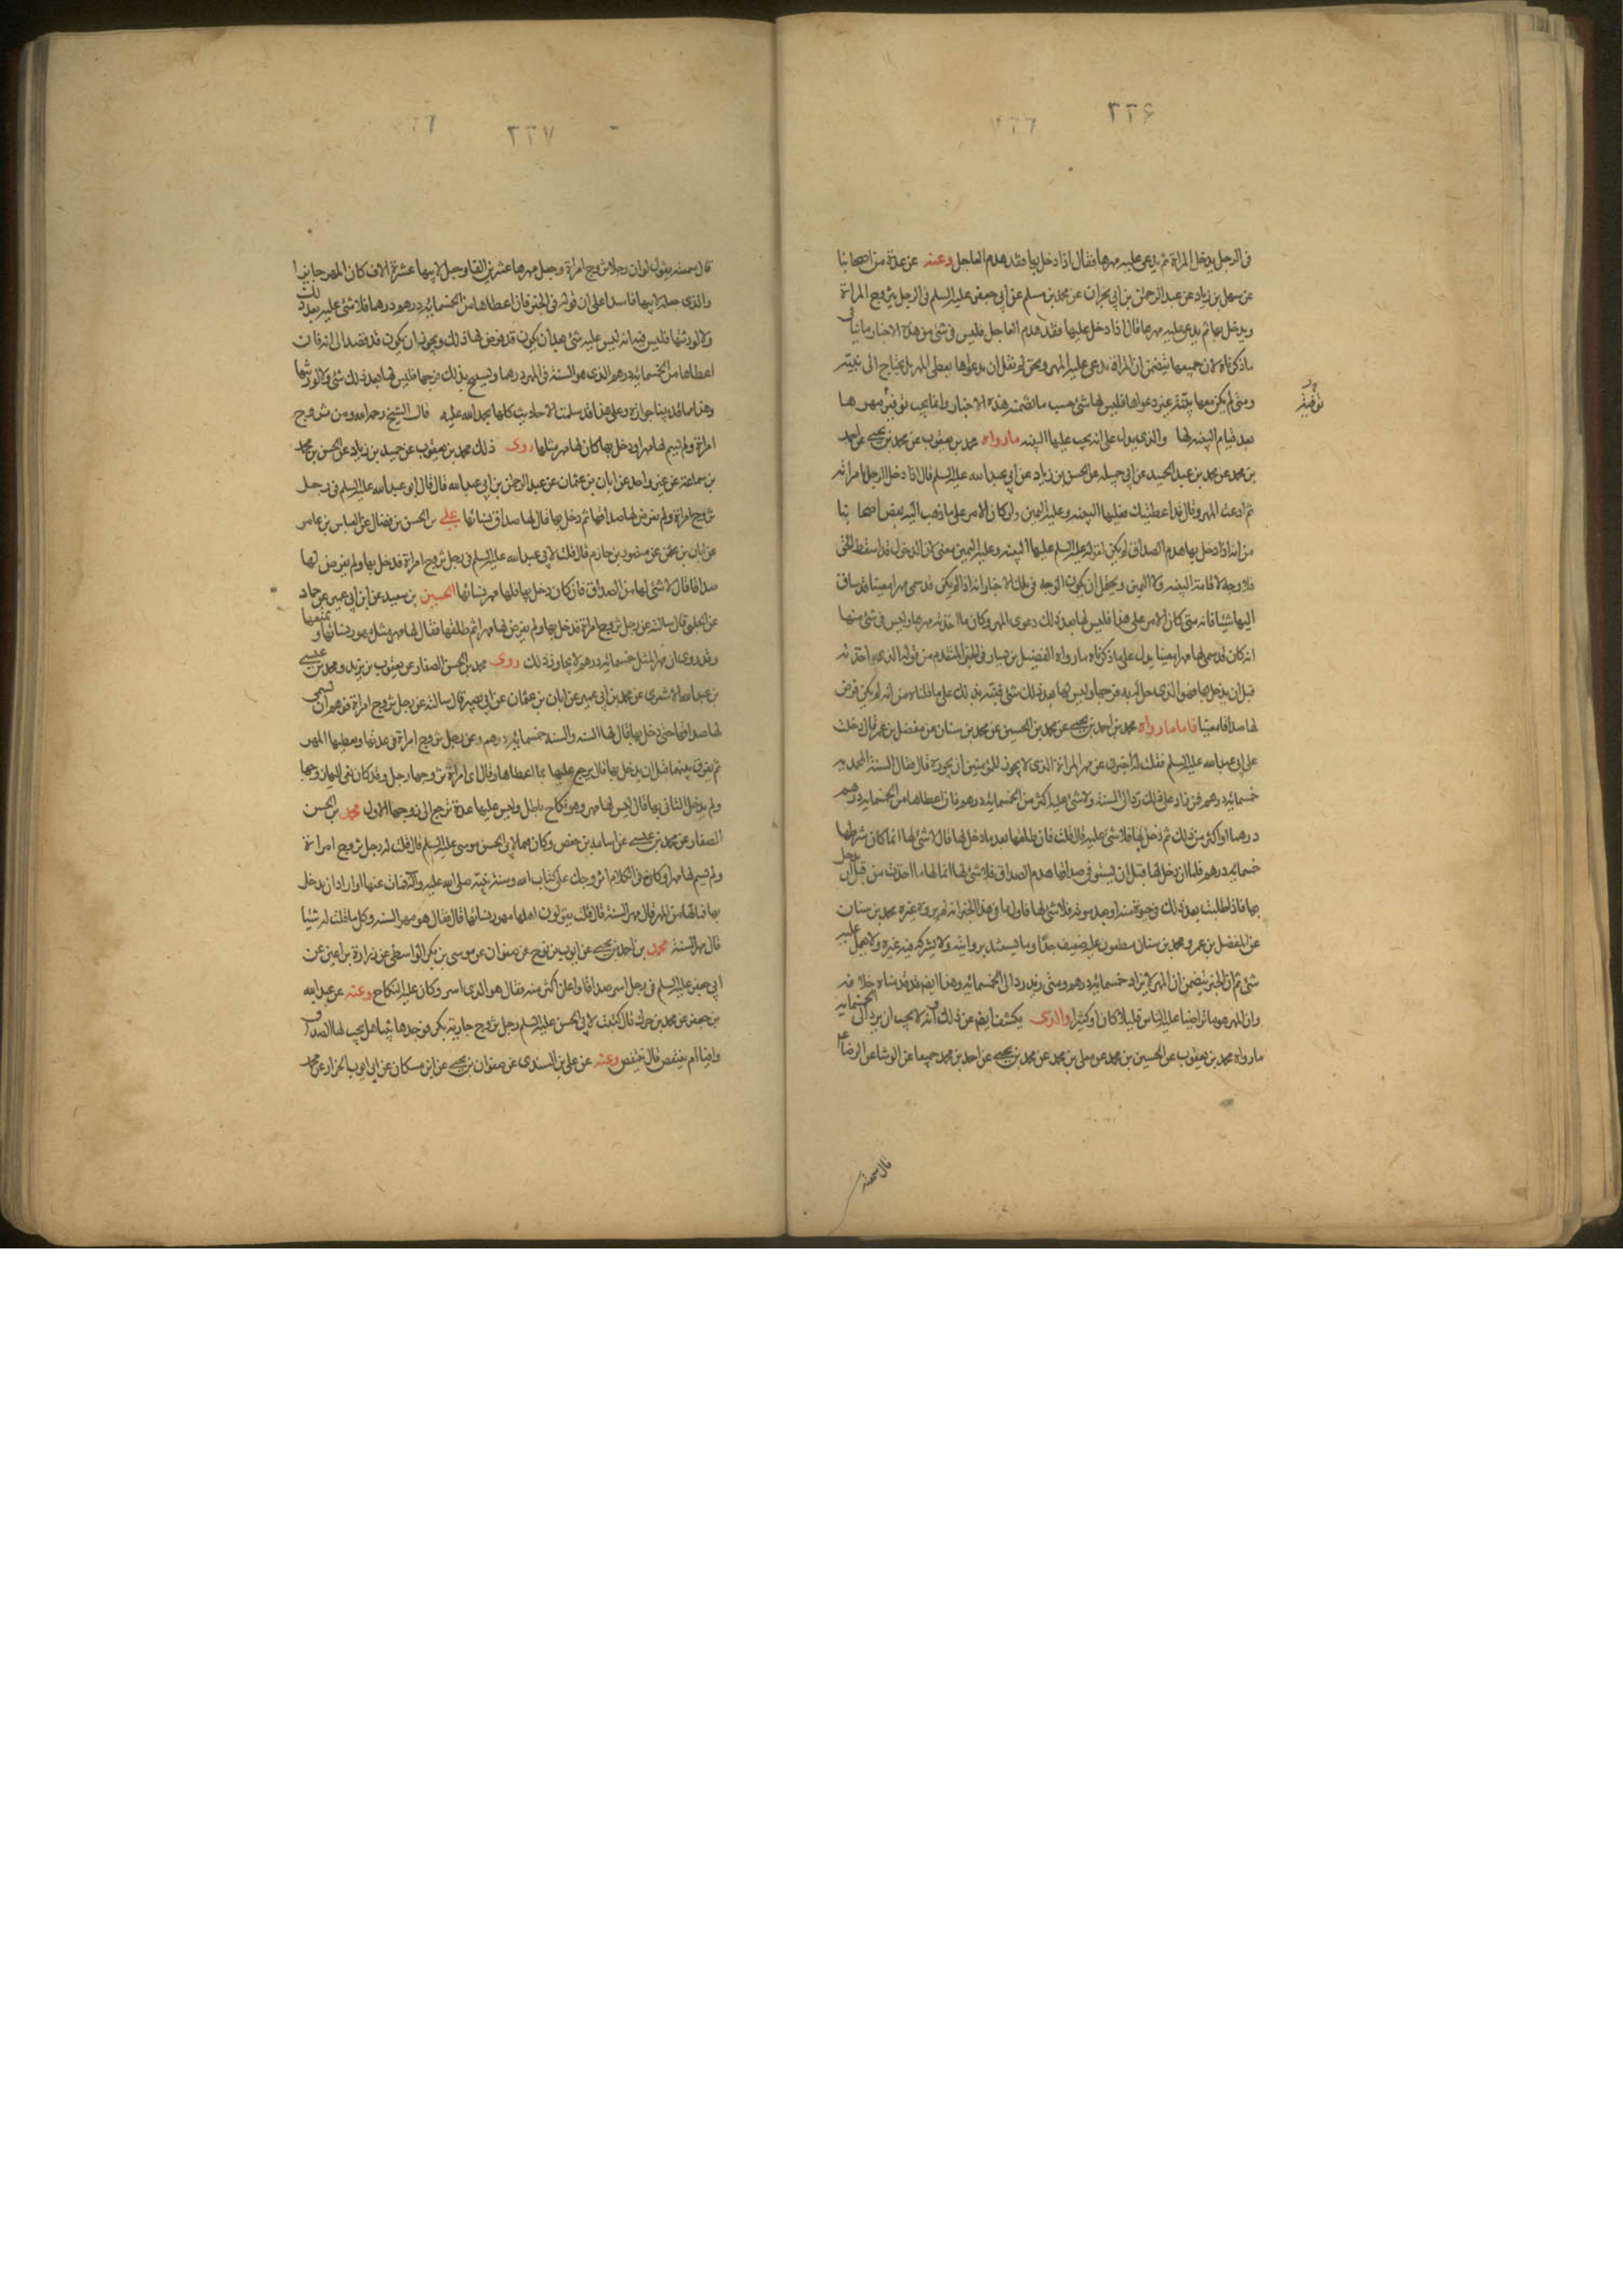 ٢٢٦
فی الرجل یدخل المراة ثم یدعی علیه مهرها فقال اذا دخل بها فقد هدم العاجل وعنه عن عدة من اصحابنا
عن سهل بن زیاد عن عبد الرحمن بن ابی نجران عن محمد بن مسلم عن ابی جعفر علیه السلم فی الرجل یتزوج المراة
ویدخل بها ثم یدعی علیه مهرها قال اذا دخل علیها فقد هدم العاجل فلیس فی شیء من هذه الاخبار ما ینافی
ما ذکرناه لان جمیعها یتضمن ان المراة تدعی علیه المهر ونحن لم نقل ان بدعواها یعطی المهر بل یحتاج الی بینه
ومتی لم یکن معها بینة غیر دعواها فلیس لها شیء حسب ما تضمنته هذه الاخبار وانما یجب توفیة مهرها
توفیة
بعد قیام البینه لها والذی یدل علی انه یجب علیها البینه ما رواه محمد بن یعقوب عن محمد بن یحیی عن احمد
بن محمد عن محمد بن عبد الحمید عن ابی جمیله عن الحسن بن زیاد عن ابی عبد الله علیه السلم قال اذا دخل الرجل بامراته
ثم ادعت المهر وقال قد اعطیتک فعلیها البینه وعلیه الیمین ولو کان الامر علی ما ذهب الیه بعض اصحابنا
من انه اذا دخل بها هدم الصداق لم یکن لقوله علیه السلم علیها البینه وعلیه الیمین معنی لان الدخول قد اسقط الحق
فلا وجه لاقامة البینه ولا الیمین ویحتمل ان یکون الوجه فی تلک الاخبار انه اذا لم یکن قد سمی مهرا معینا وقد ساق
الیها شیئا فانه متی کان الامر علی هذا فلیس لها بعد ذلک دعوی المهر وکان ما اخذته مهرها ولیس فی شیء منها
انه کان قد سمی لها مهرا معینا یدل علی ما ذکرناه ما رواه الفضیل بن یسار فی الخبر المتقدم من قوله الذی اخذته
قبل ان یدخل بها فهو الذی حل له به فرجها ولیس لها بعد ذلک شیء فنبه بذلک علی ما قلناه من انه لم یکن فرض
لها صداقا معینا فاما ما رواه محمد بن احمد بن یحیی عن محمد بن الحسین عن محمد بن سنان عن مفضل بن عمر قال دخلت
علی ابی عبد الله علیه السلم فقلت له اخبرنی عن مهر المراة الذی لا یجوز للمؤمنین ان یجوزه قال فقال السنة المحمدیه
خمسمائة درهم فمن زاد علی ذلک رد الی السنة ولا شیء علیه اکثر من الخمسمائة درهم فان اعطاها من الخمسمائة درهم
درهما او اکثر من ذلک ثم دخل بها فلا شیء علیه قال قلت فان طلقها بعد ما دخل بها قال لا شیء لها انما کان شرطها
خمسمائة درهم فلما ان دخل بها قبل ان تستوفی صداقها هدم الصداق فلا شیء لها انما لها ما اخذت من قبل ان یدخل
بها فاذا طلبت بعد ذلک فی حیوة منه او بعد موته فلا شیء لها فاول ما فی هذا الخبر انه لم یروه غیر محمد بن سنان
عن المفضل بن عمر ومحمد بن سنان مطعون علیه ضعیف جدا وما یستبد بروایته ولا یشرکه فیه غیره ولا یعمل علیه
شیء ثم ان الخبر یتضمن ان المهر لا یزاد خمسمائة درهم ومتی زید رد الی الخمسمائه وهذا ایضا قد قدمناه خلافه
وان المهر هو ما تراضیا علیه الناس قلیلا کان او کثیرا والذی یکشف ایضا عن ذلک وانه لا یجب ان یرد الی الخمسمایه
ما رواه محمد بن یعقوب عن الحسین بن محمد عن معلی بن محمد عن محمد بن یحیی عن احمد بن محمد جمیعا عن الوشا عن الرضا ع
قال سمعته
٢٢٧
قال سمعته یقول لو ان رجلا تزوج امراة وجعل مهرها عشرین الفا وجعل لابیها عشرة الاف کان المهر جایزا
والذی جعله لابیها فاسدا علی ان قوله فی الخبر فان اعطاها من الخمسمایة درهم درهما فلا شیء علیه بعد ذلک
ولا لورثتها فلیس فیه انه لیس علیه شیء بعد ان یکون قد فرض لها ذلک ویجوز ان یکون قد قصد الی انه فان
اعطاها من الخمسمائة درهم الذی هو السنة فی المهر درهما ویستبیح بذلک فرجها فلیس لها بعد ذلک شیء ولا لورثتها
وهذا ما قد بینا جوازه وعلی هذا قد سلمت الاحادیث کلها بحمد الله علیه قال الشیخ رحمه الله ومن تزوج
امراة ولم یسم لها مهرا ودخل بها کان لها مهر مثلها روی ذلک محمد بن یعقوب عن حمید بن زیاد عن الحسن بن محمد
بن سماعة عن غیر واحد عن ابان بن عثمان عن عبد الرحمن بن ابی عبد الله قال قال ابو عبد الله علیه السلم فی رجل
تزوج امراة ولم یفرض لها صداقها ثم دخل بها قال لها صداق نسائها علی بن الحسن بن فضال عن العباس بن عامر
عن ابان بن عثمن عن منصور بن حازم قال قلت لابی عبد الله علیه السلم فی رجل تزوج امراة قد دخل بها ولم یفرض لها
صداقا قال لا شیء لها من الصداق فان کان دخل بها فلها مهر نسائها الحسین بن سعید عن ابن ابی عمیر عن حماد
عن الحلبی قال سالته عن رجل تزوج امراة قد دخل بها ولم یفرض لها مهرا ثم طلقها فقال لها مهر مثل مهور نسائها ویمتعها
وقد روی ان مهر المثل خمسمائة درهم لا یجاوز ذلک روی محمد بن الحسن الصفار عن یعقوب بن یزید ومحمد بن عیسی
بن عبد الله الاشعری عن محمد بن ابی عمیر عن ابان بن عثمان عن ابی بصیر قال سالته عن رجل تزوج امراة فوهم ان یسمی
لها صداقها حتی دخل بها قال لها السنه والسنه خمسمایة درهم وعن رجل تزوج امراة فی عدتها ویعطیها المهر
ثم یفرق بینهما قبل ان یدخل بها قال یرجع علیها بما اعطاها وقال ای امراة تزوجها رجل وقد کان نعی الیها زوجها
ولم یدخل الثانی بها قال لیس لها مهر وهو نکاح باطل ولیس علیها عدة ترجع الی زوجها الاول محمد بن الحسن
الصفار عن محمد بن عیسی عن اسامة بن حفص وکان قیما لابی الحسن موسی علیه السلم قال قلت له رجل تزوج امراة
ولم یسم لها مهرا وکان فی الکلام اتزوجک علی کتاب الله وسنة نبیه صلی الله علیه وآله فمات عنها او اراد ان یدخل
بها فما لها من المهر قال مهر السنة قال قلت یقولون اهلها مهور نسائها قال فقال هو مهر السنه وکل ما قلت له شیئا
قال مهر السنة محمد بن احمد بن یحیی عن ایوب بن نوح عن صفوان عن موسی بن بکر الواسطی عن زرارة بن اعین عن
ابی جعفر علیه السلم فی رجل اسر صداقا واعلن اکثر منه فقال هو الذی اسر وکان علیه النکاح وعنه عن عبد الله
بن جعفر عن محمد بن جزک قال کتبت لابی الحسن علیه السلم رجل تزوج جاریة بکر فوجدها ثیبا هل یجب لها الصداق
وافیا ام ینتقص قال ینتقص وعنه عن علی بن السندی عن صفوان بن یحیی عن ابن مسکان عن ابی ایوب الخزاز عن محمد